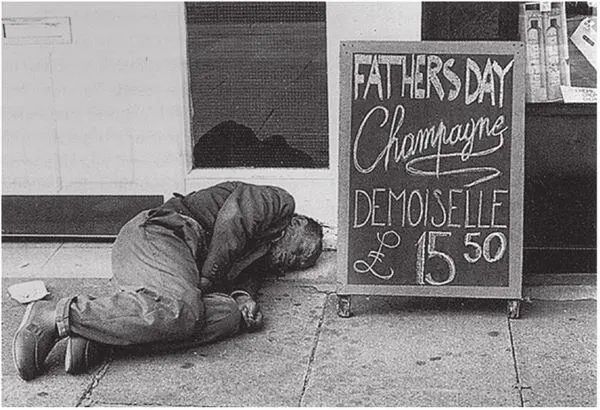 FATHERS DAY
Champagne
DEMOISELLE
£15 50